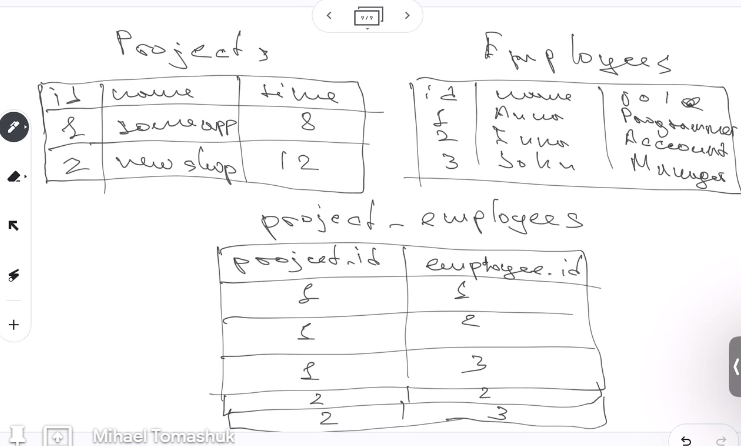 9/9
Projects
id name time
1 some app 8
2 new shop 12
Employees
id name role
1 Anna Programmer
2 Inna Account
3 John Manager
project_employees
project.id employee.id
1 1
1 2
1 3
2 2
2 3
Mihael Tomashuk